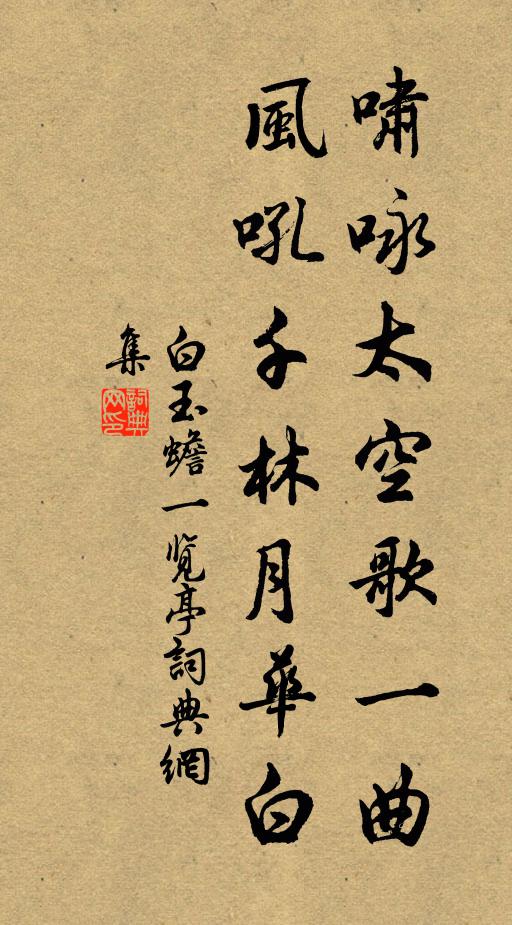 嘯咏太空歌一曲
風吼千林月華白
白玉蟾一览亭詞典網
集
詞典网印